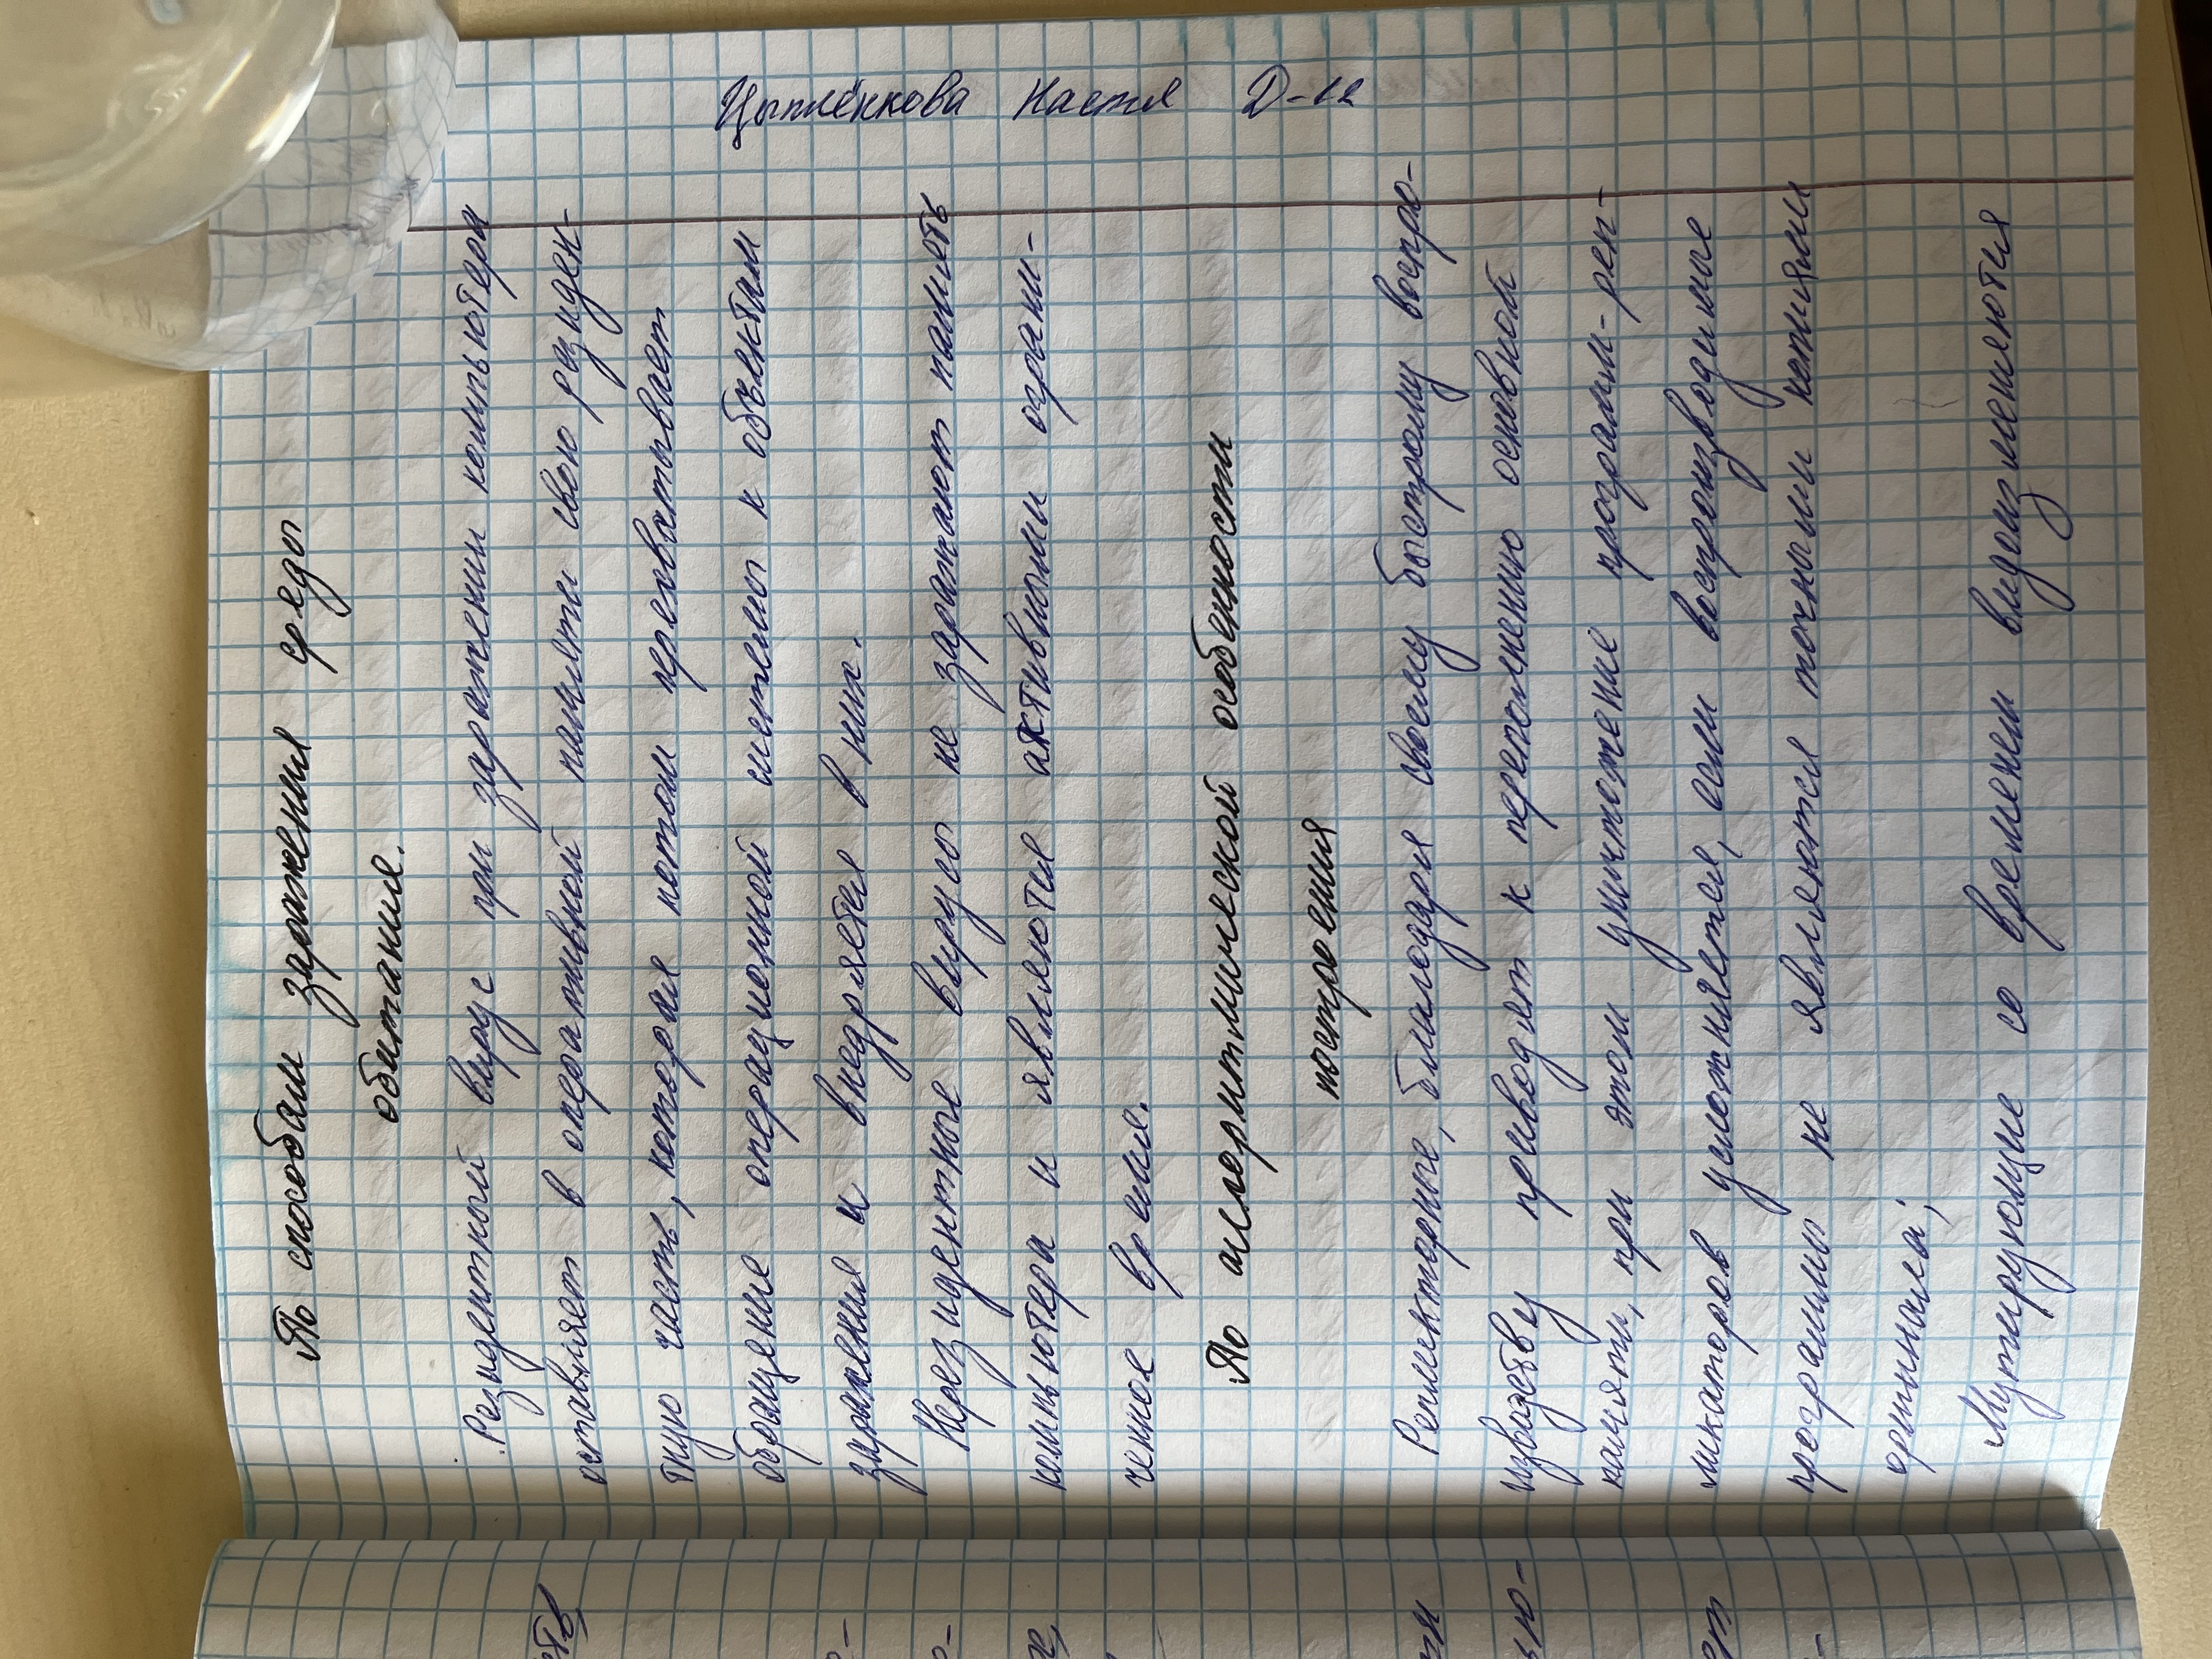 Цыплёнкова Настя Д-12
По способам заражения среды
обитания.
Резидентный вирус при заражении компьютера
оставляет в оперативной памяти свою резиден-
тную часть, которая потом перехватывает
обращение операционной системы к объектам
заражения и внедряется в них.
Нерезидентные вирусы не заражают память
компьютера и являются активными ограни-
ченное время.
По алгоритмической особенности
построения
Репликаторные, благодаря своему быстрому воспро-
изводству приводят к переполнению основной
памяти, при этом уничтожение программ-реп-
ликаторов усложняется, если воспроизводимые
программы не являются точными копиями
оригинала;
Мутирующие со временем видоизменяются